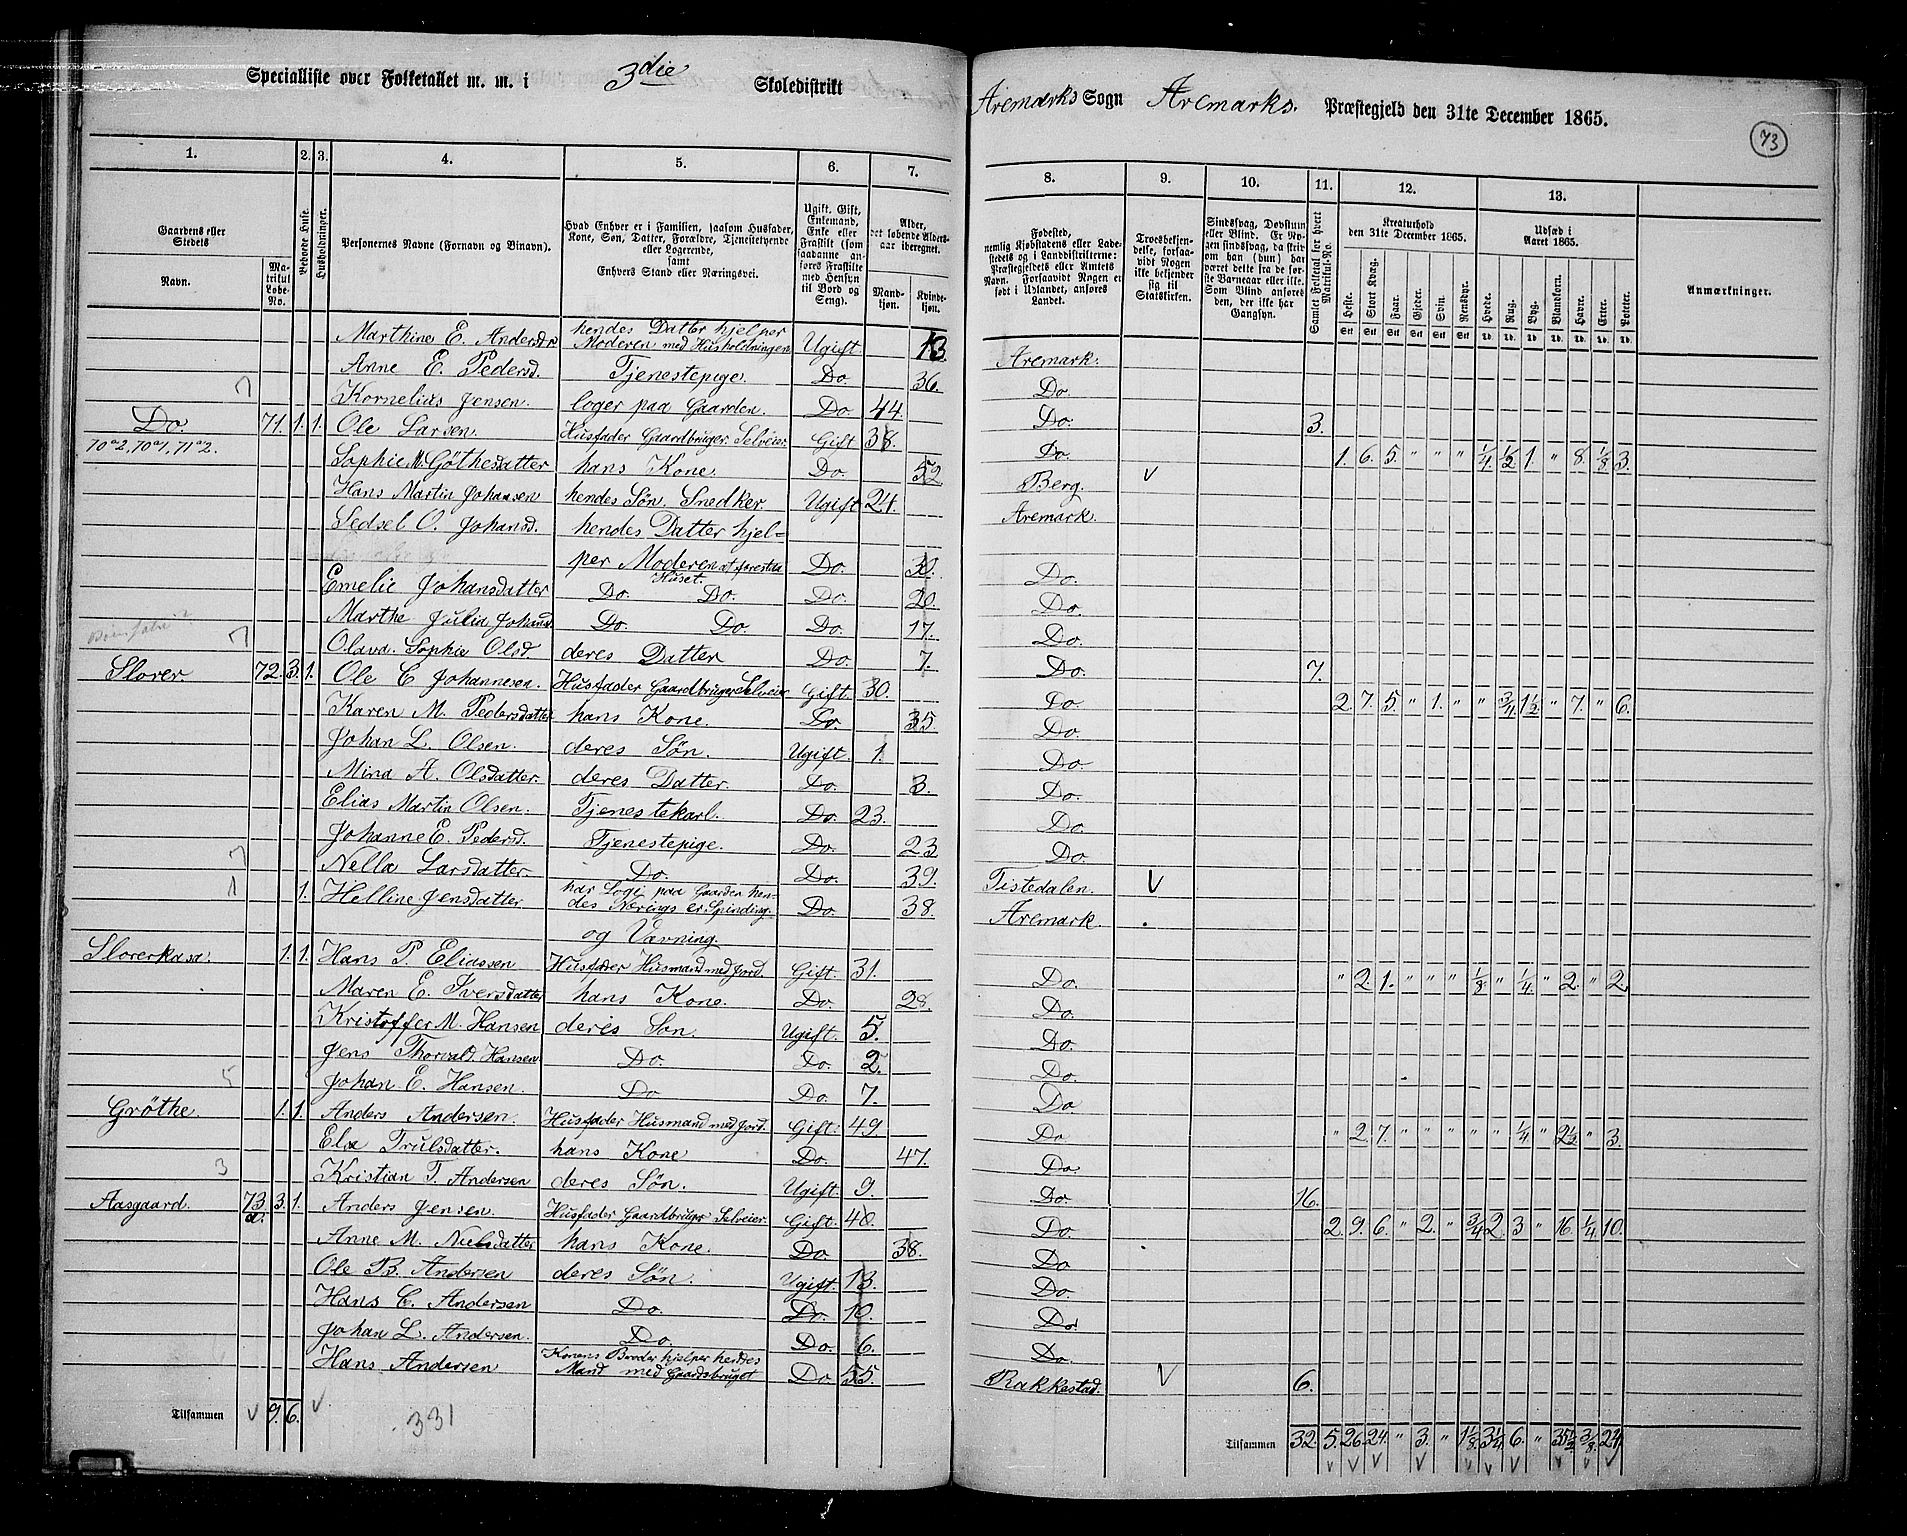 Specialliste over Folketallet m. m. i 3die Skoledistrikt Aremarks Sogn Aremarks. Præstegjeld den 31te December 1865.
73
1. 2. 3. 4. 5. 6. 7. 8. 9. 10. 11. 12. 13.
Gaardens eller Stedets Navn. Matrikul Løbe-No. Beboede Huse. Husholdninger. Personernes Navne (Fornavn og Binavn). Hvad Enhver er i Familien, saasom Husfader, Kone, Søn, Datter, Forældre, Tjenestetyende eller Logerende, samt Enhvers Stand eller Næringsvei. Ugift, Gift, Enkemand, Enke eller Fraskilt (som saadanne anføres Fraskilte med Hensyn til Bord og Seng). Alder, det løbende Alders-aar iberegnet. Mandkjøn. Kvindekjøn.
Fødested, nemlig Kjøbstadens eller Ladestedets og i Landdistrikterne: Præstegjeldets eller Amtets Navn. Forsaavidt Nogen er født i Udlandet, anføres Landet. Troesbekjendelse, forsaavidt Nogen ikke bekjender sig til Statskirken. Sindssvag, Døvstum eller Blind. Er Nogen sindssvag, da skrives om han (hun) har været dette fra de første Barneaar eller ikke. Som Blind anføres den, der ikke har Gangsyn. Samlet Folketal for hvert Matrikul-No. Kreaturhold den 31te December 1865. Heste. Stort Kvæg. Faar. Gjeder. Svin. Rensdyr. Udsæd i Aaret 1865. Hvede. Rug. Byg. Blandkorn. Havre. Erter. Poteter. Anmærkninger.
Marthine E. Andersd. hendes Datter hjelper Moderen med Husholdningen Ugift. 13 Aremark.
Anne E. Pedersd. Tjenestepige. Do. 36. Do.
7 Kornelius Jensen. loger paa Gaarden. Do. 44. Do. 3.
Do. 71. 1. 1. Ole Larsen. Husfader Gaardbruger Selveier. Gift 38. Do. 1. 6. 5. " " " 1/4. 1/2 1. " 8. 1/8 3.
70a2, 70a1, 71a2. Sophie M. Göthesdatter hans Kone. Do. 52. Berg. V
Hans Martin Johansen hendes Søn. Snedker. Ugift 24. Aremark.
Sedsel O. Johansd. hendes Datter hjel=
per Moderen at forestaa Huset. Do. 30. Do.
Emelie Johansdatter Do. Do. Do. 20. Do.
Marthe Julia Johansd. Do. Do. Do. 17. Do.
7 Olava Sophie Olsd. deres Datter Do. 7. Do. 7.
Slorer. 72. 3. 1. Ole C. Johannesen. Husfader Gaardbruger Selveier Gift. 30. Do. 2. 7. 5. " 1. " " 3/4. 1 1/2 " 7. " 6.
Karen M. Pedersdatter hans Kone. Do. 35. Do.
Johan L. Olsen. deres Søn. Ugift. 1. Do.
Mina A. Olsdatter. deres Datter. Do. 3. Do.
Elias Martin Olsen. Tjenestekarl. Do. 23. Do.
Johanne E. Pedersd. Tjenestepige. Do. 23 Do.
7 Nella Larsdatter. Do. Do. 39. Tistedalen. V
1 1. Helline Jensdatter har Logi paa Gaarden hendes Nærings er Spinding Do. 38. Aremark.
og Værning.
Slorerkasa. 1. 1. Hans P. Eliassen Husfader Husmand med Jord. Gift. 31. Do. " 2. 1. " " " 1/8. " 1/4. " 2. " 2.
Maren E. Iversdatter hans Kone. Do. 28. Do.
Kristoffer M. Hansen deres Søn. Ugift. 5. Do.
Jens Thorvald Hansen Do. Do. 2. Do.
5 Johan E. Hansen. Do Do. 7. Do
Gröthe. 1. 1. Anders Andersen. Husfader Husmand med Jord. Gift. 49. Do " 2. 7. " " " " " 1/4. " 2 1/2 " 3.
Else Trulsdatter. hans Kone Do. 47. Do
3 Kristian T. Andersen deres Søn. Ugift. 9. Do. 16.
Aasgaard. 73 a. 3. 1. Anders Jensen. Husfader Gaardbruger Selveier. Gift. 40. Do. 2. 9. 6. " 2. " 3/4 2. 3 " 16. 1/4. 10.
Anne M. Nielsdatter hans Kone. Do. 38. Do
Ole B. Andersen deres Søn. Ugift. 13. Do.
Hans C. Andersen Do. Do. 10. Do
Johan L. Andersen. Do. Do. 6. Do.
Hans Andersen Konens Broder hjelper hendes Mand med Gaardsbruget Do 55. Rakkestad. V 6.
Tilsammen V 9. 6. V 331 Tilsammen 32. 5. 26 24. " 3. " 1 1/8. 3 1/4 6. " 35 1/2 3/8 24.